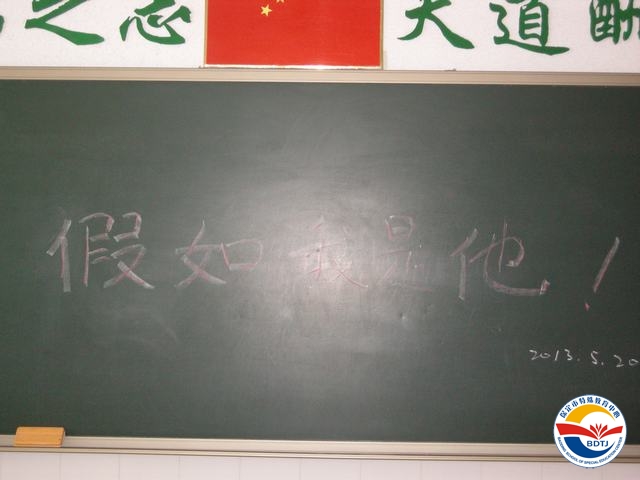 之志 天道酬
假如我是他！
2013.5.20
保定市特殊教育中心
BDTJ